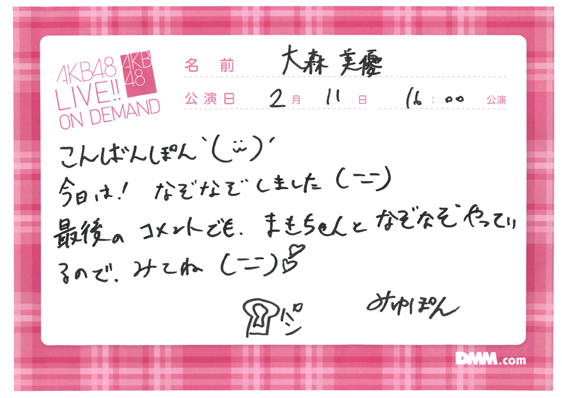 AKB48
LIVE!!
ON DEMAND
AKB
48
名前 大森美優
公演日 2月 11日 16:00 公演
こんばんぽん`(¨̮)´
今日は! なぞなぞしました(ニニ)
最後の コメントでも、まもちゃんと なぞなぞやってい
るので、みてね (ニニ)
パン
みゆぽん
DMM.com